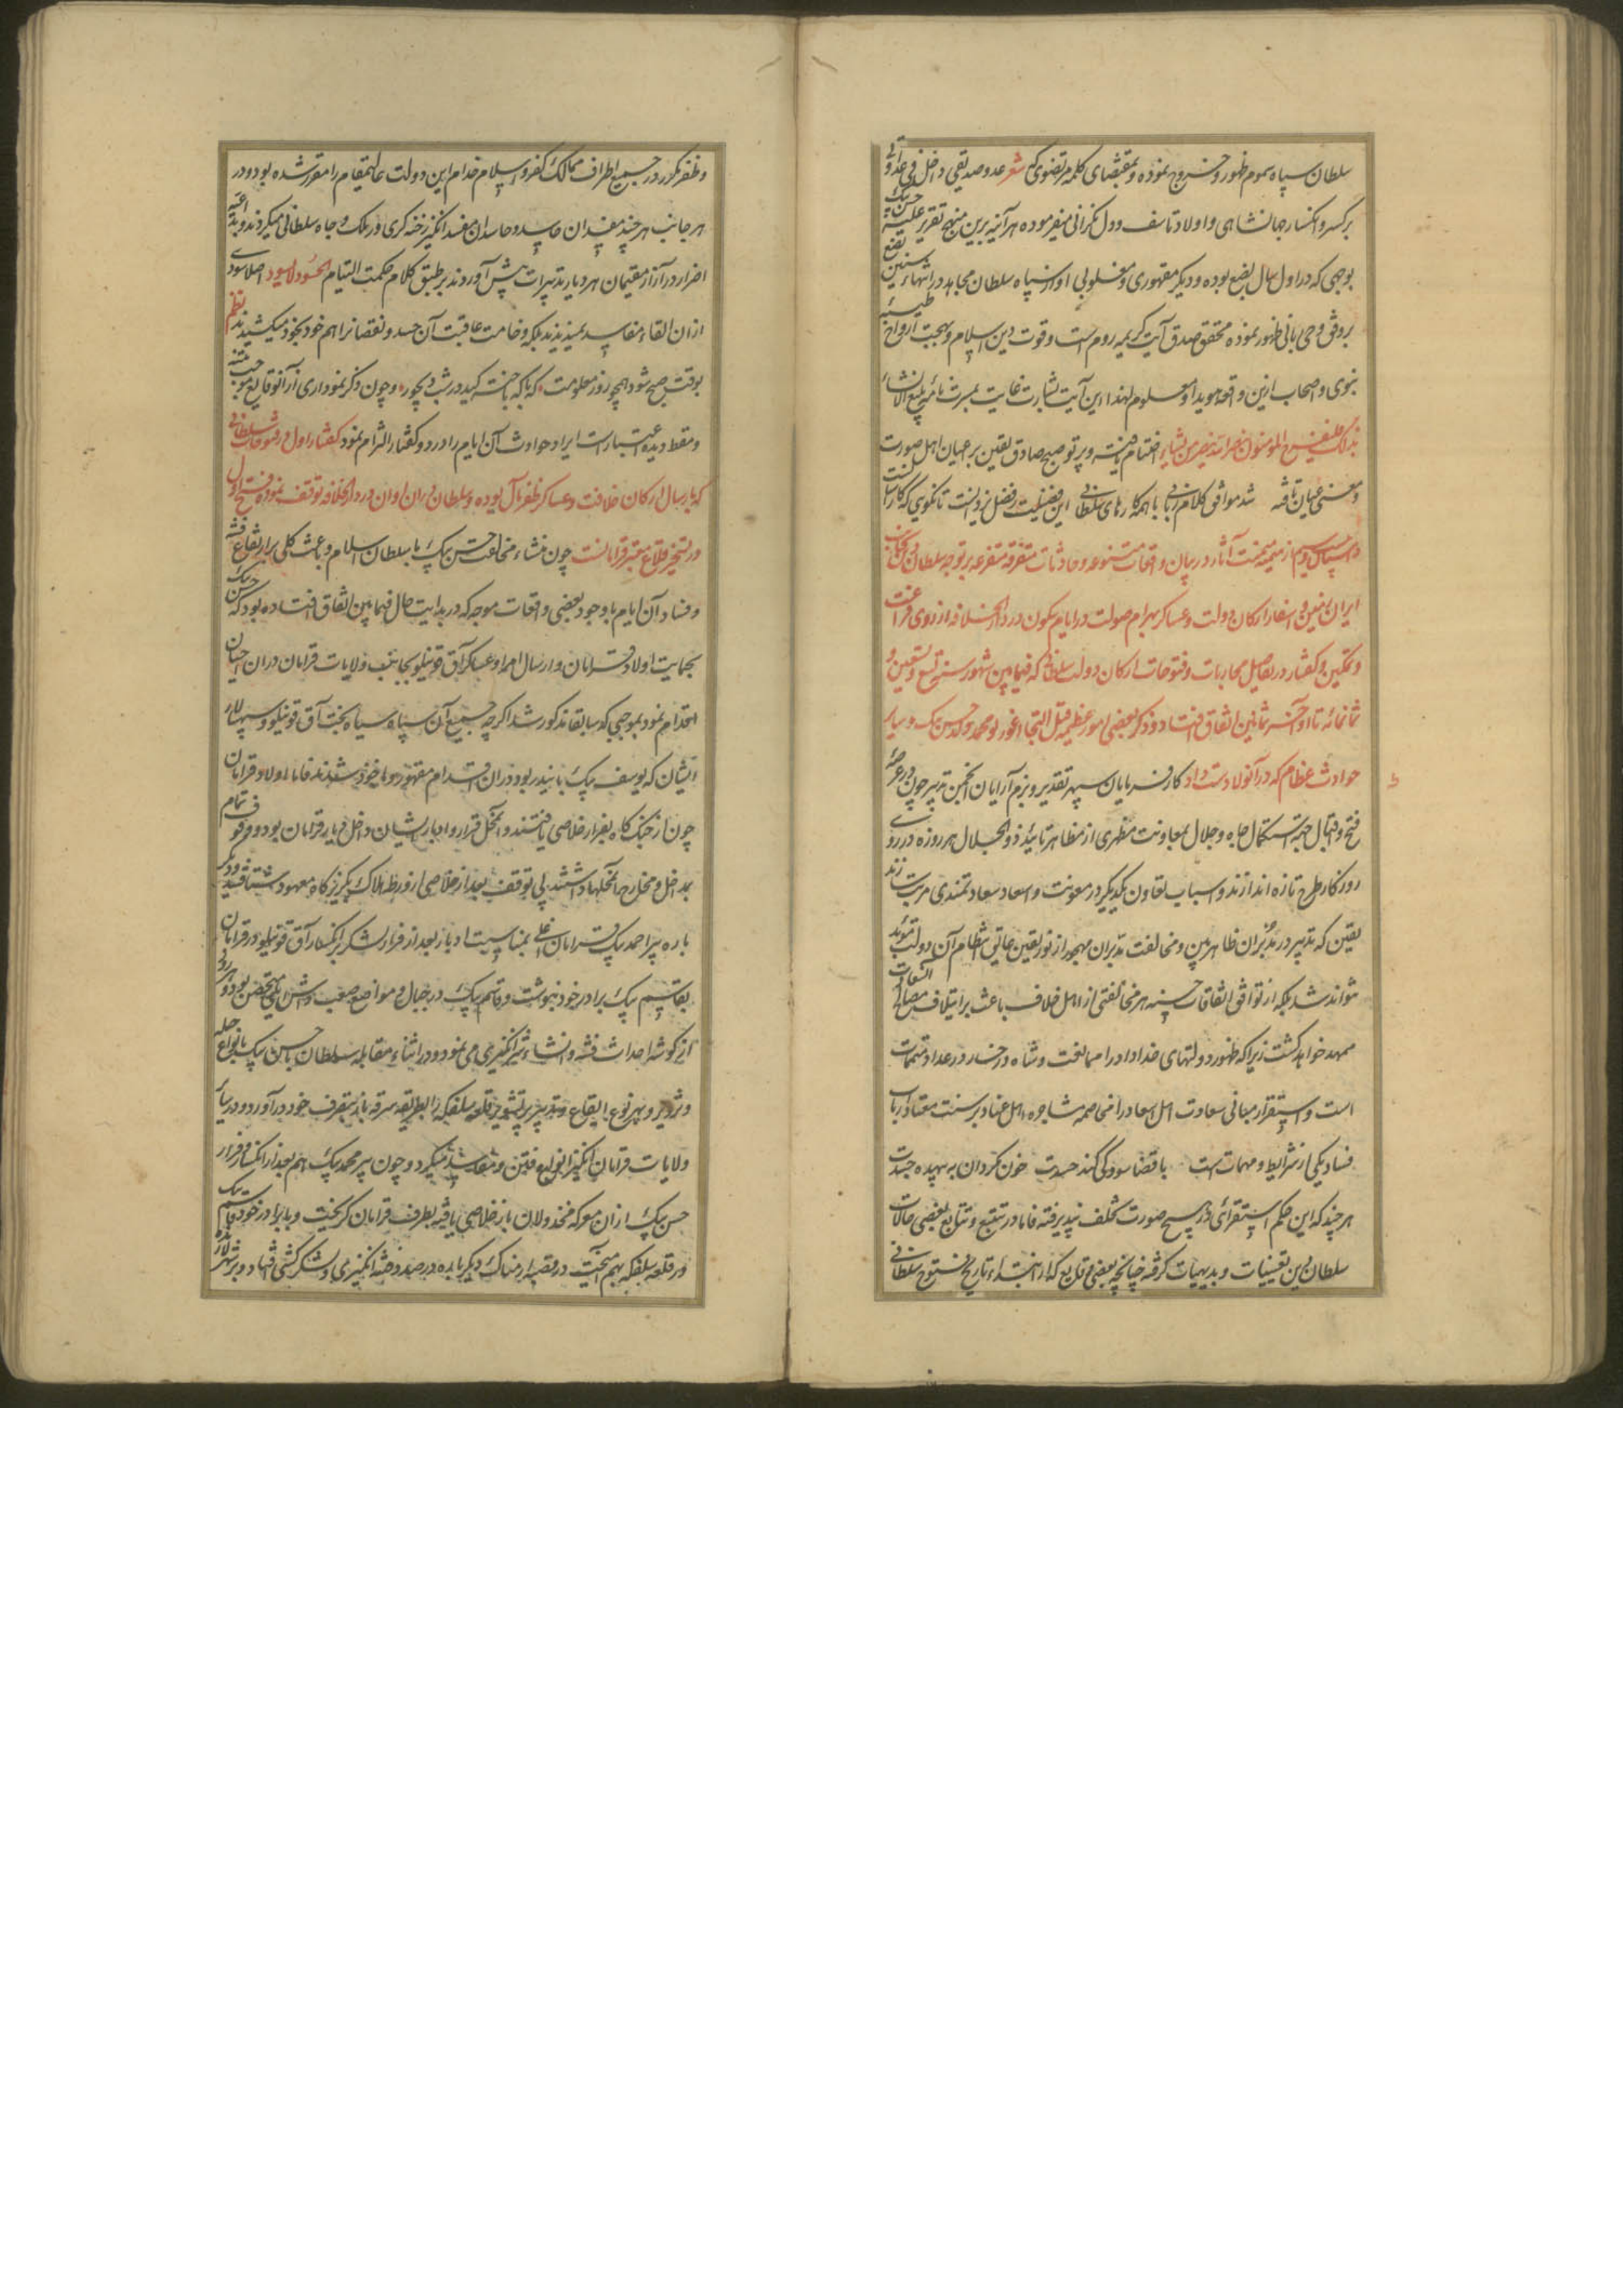 سلطان سپاه سموم ظهور و خروج نموده و بمقتضای کلمه مرتضوی که شعر عدو صدیقی داخل فی عداوتی
بر کسر و انکسار جهانشاهی و اولاد تاسف و دل نگرانی میفرموده هر آینه برین منهج تقریر غلبه حسن بیک
بوجهی که در اول سال بضع بوده و دیگر مقهوری و مغلوبی او از سپاه سلطان مجاهد در انتهاء بضع سنین
بر وفق وحی ربانی ظهور نموده محقق صدق آیت کریمه روم است و قوت دین اسلام و بهجت ارواح طیبه
نبوی و اصحاب ازین واقعه هویدا و معلوم لهذا این آیت بشارت غایت بمسرت
المومنون بنصر الله ینصر من یشاء اختتام یافته و پرتو صبح صادق یقین بر اعیان اهل صورت
و معنی عیان تافه شد موافق کلام ربانی با همه کارهای سلطانی این فضیلت ز فضل یزدانست تا نکویی که کار
در بیان واقعات متنوعه و حادثات متفرقه متفرعه بر توجه سلطان
ایران و تعیین اسفار ارکان دولت و عساکر بهرام صولت در ایام سکون در دار الخلافه از روی فراغت
و تمکین و گفتار در تفاصیل محاربات و فتوحات ارکان دولت سلطانی که فیما بین شهور سنه تسع و سبعین و
ثمانمائه تا اواخر ثمانین اتفاق افتاد و ذکر بعضی امور عظیمه قبل التجا اغورلو محمد ولد حسن بیک و سایر
حوادث عظام که در آنولا دست داد کارفرمایان سپهر تقدیر و بزم آرایان انجمن تدبیر چون در عرصه
فتح و اقبال جهة استکمال جاه و جلال بمعاونت مظهری از مظاهر تائید ذوالجلال هر روزه در روی
روزگار طرح تازه اندازند و اسباب تعاون یکدیگر در معونت و اسعاد سعادتمندی مرتب سازند
یقین که تدبیر در مدبران ظاهربین و مخالفت مدبران مهجور از نور یقین عایق انتظام آن دولت موید
نتواند شد بلکه از توافق اتفاقات حسنه هر مخالفتی از اهل خلاف باعث بر ایتلاف مصالح
ممهد خواهد گشت زیرا که ظهور دولتهای خداداد را مخالفت و شاه در عداد متممات
است و استقرار مبانی سعادت اهل اسعاد را مخاصمه مشاجره اهل عناد بر سنت معتاد ارباب
فساد یکی از شرایط و مهمات است با قضا سود کی کند حسدت خون مگردان به بیهده جسدت
هر چند که این حکم استقرائی در هیچ صورت تخلف نپذیرفته فاما در تتبع و تتابع بعضی حالات
سلطانی بر یقینیات و بدیهیات گرفته چنانچه بعضی وقایع که از ابتداء تاریخ فتوح سلطانی
و ظفر مکرر در جمیع اطراف ممالک کفر و اسلام خدام این دولت عالیمقام را مقرر شده بود و در
هر جانب هر چند مفسدان حاسد و حاسدان مفسد انگیز رخنه گری در ملک و جاه سلطانی میکردند و بداعیه
اضرار در آزار مقیمان هر دیار تدبیرات پیش آوردند بر طبق کلام حکمت التیام الحسود لا یسود اصلا سودی
از ان القاء مفاسد نمیدیدند بلکه وخامت عاقبت آن حسد و نقصانرا هم خود بخود میکشیدند نظم
بوقت صبح شود همچو روز معلومت که با که باخته عشق در شب دیجور و چون ذکر نموداری از آنوقایع موجب تنبه
و مقط دیده اعتبارست ایراد حوادث آن ایام را در دو گفتار التزام نمود گفتار اول در فتوحات سلطانی
که بارسال ارکان خلافت و عساکر ظفر مآل بوده و سلطان دران اوان در دار الخلافه توقف نموده فتح اول
در تسخیر قلاع معتبر قرامانست چون منشاء مخالفت حسن بیک با سلطان اسلام و باعث کلی بر ارتفاع فتنه
و فساد آن ایام با وجود بعضی واقعات موجه که در بدایت حال فیما بین اتفاق افتاده بود که حسن بیک
بحمایت اولاد قرامان و ارسال امرا و عساکر آق قوینلو بجانب ولایات قرامان دران احیان
اقدام نمود بموجبی که سابقا مذکور شد اگرچه جمیع آن سپاه سیاه بخت آق قوینلو و سپهسالار
ایشان که یوسف بیک بایندر بود دران اقدام مقهور و ماخوذ شدند فاما اولاد قرامان
چون از جنگ گاه بفرار خلاصی یافتند و آن محل قرار و ادبار ایشان داخل دیار قرامان بود و وقوف تمام
بمداخل و مخارج آن محلها داشتند بی توقف بعد از خلاصی از ورطه هلاک بگریزگاه معهود شتافتند و دیگر
باره پیر احمد بیک قرامان اغلی بمناسبت ادبار بعد از فرار لشکر انکسار آق قوینلو در قرامان
بقاسم بیک برادر خود پیوست و قاسم بیک در جبال و مواضع صعب متحصن بود و هر روزی
از گوشه احداث فتنه و انشاء شر انگیزی می نمود و در اثناء مقابله سلطان با حسن بیک بانواع حیله
و تزویر و بهر نوع ایقاع و تدبیر بر تشویر قلعه سلفکه را بطریقه سرقه باز بتصرف خود در آورد و در سایر
ولایات قرامان انگیز انواع فتن و مفاسد میکرد و چون پیر محمد بیک هم بعد از انکسار و فرار
حسن بیک از ان معرکه مخذولان باز خلاصی یافته بطرف قرامان گریخت و با برادر خود قاسم بیک
در قلعه سلفکه بهم آمیخت در قصبه ارمناک دیگر باره در صدد فتنه انگیزی و لشکر کشی افتاد و بر شهر لارنده